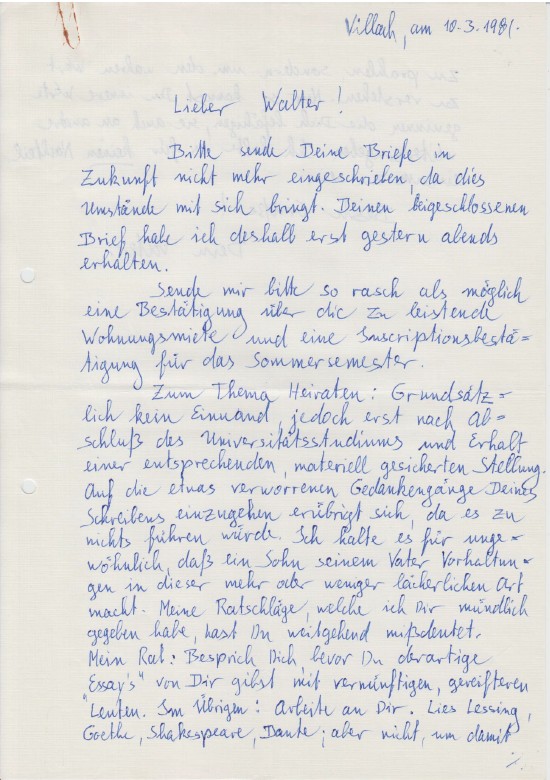 Villach, am 10.3.1981.
Lieber Walter!
Bitte sende Deine Briefe in
Zukunft nicht mehr eingeschrieben, da dies
Umstände mit sich bringt. Deinen beigeschlossenen
Brief habe ich deshalb erst gestern abends
erhalten.
Sende mir bitte so rasch als möglich
eine Bestätigung über die zu leistende
Wohnungsmiete und eine Inscriptionsbestä=
tigung für das Sommersemester.
Zum Thema Heiraten: Grundsätz=
lich kein Einwand, jedoch erst nach Ab=
schluß des Universitätsstudiums und Erhalt
einer entsprechenden, materiell gesicherten Stellung.
Auf die etwas verworrenen Gedankengänge Deines
Schreibens einzugehen erübrigt sich, da es zu
nichts führen würde. Ich halte es für unge=
wöhnlich, daß ein Sohn seinem Vater Vorhaltun=
gen in dieser mehr oder weniger lächerlichen Art
macht. Meine Ratschläge, welche ich Dir mündlich
gegeben habe, hast Du weitgehend mißdeutet.
Mein Rat: Besprich Dich, bevor Du derartige
"Essay's" von Dir gibst mit vernünftigen, gereifteren
Leuten. Im Übrigen: Arbeite an Dir. Lies Lessing,
Goethe, Shakespeare, Dante; aber nicht, um damit
./.